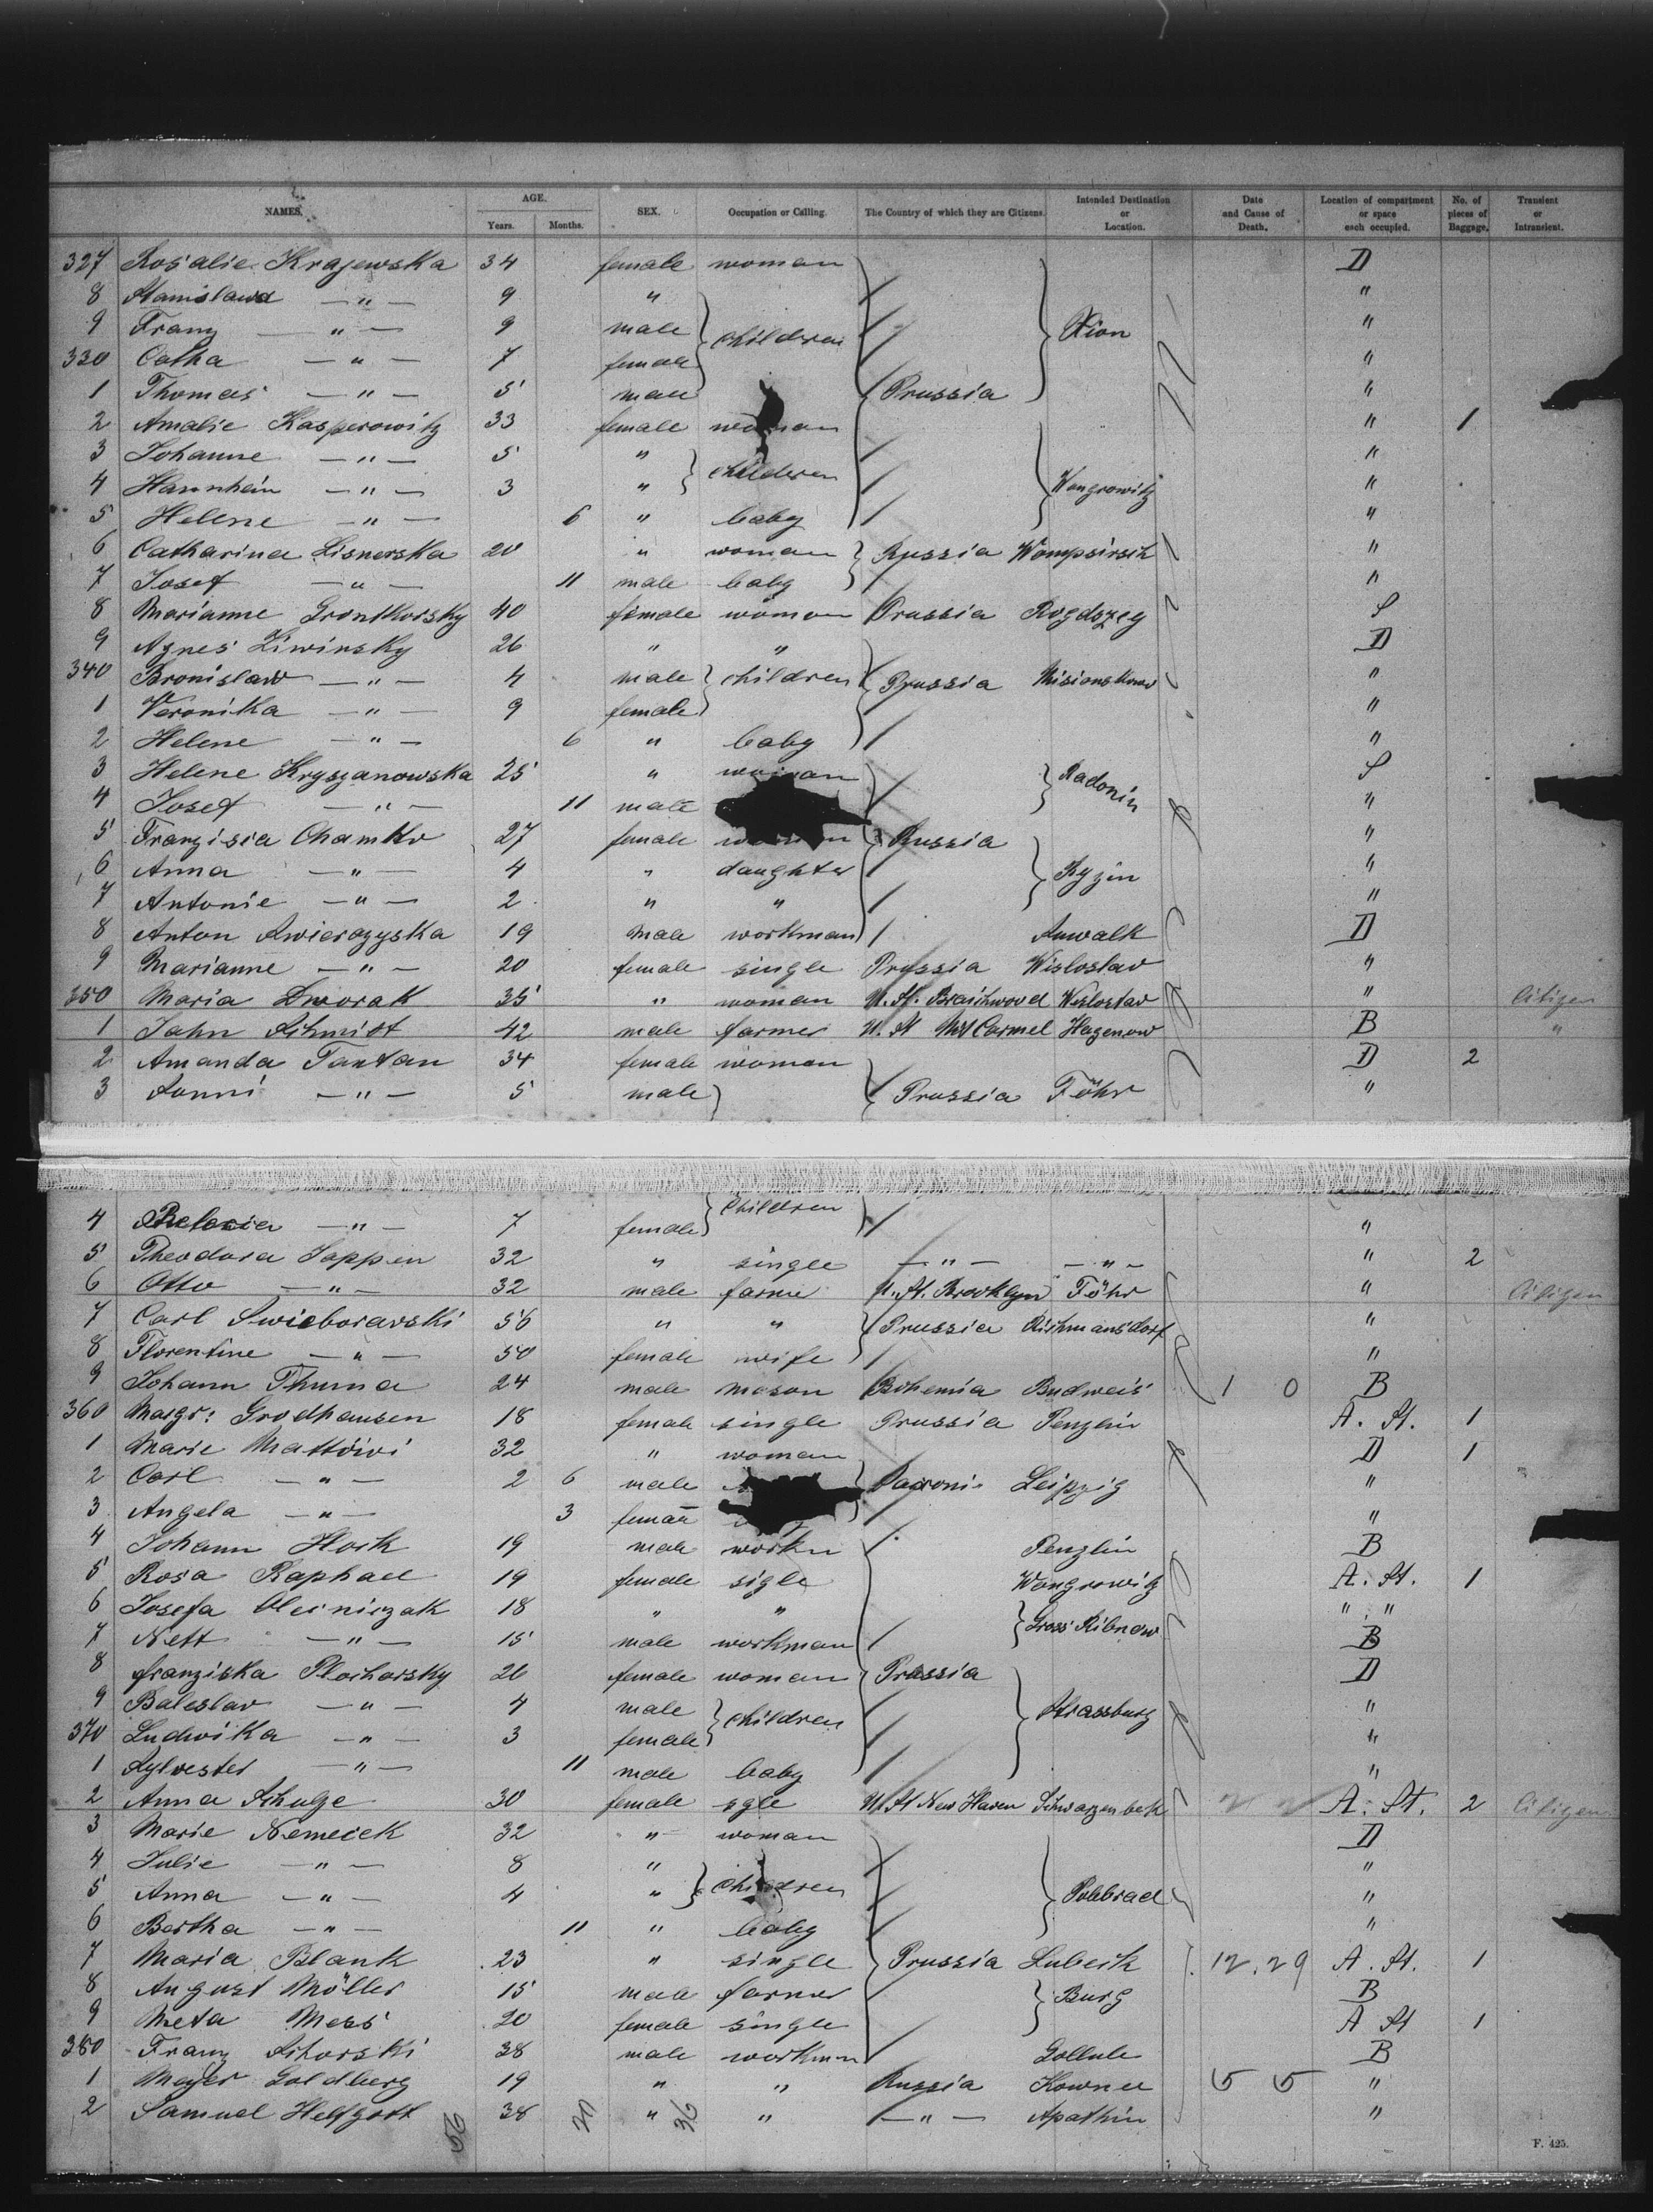 NAMES. AGE. Years. Months. SEX. Occupation or Calling. The Country of which they are Citizens. Intended Destination or Location. Date and Cause of Death. Location of compartment or space each occupied. No. of pieces of Baggage. Transient or Intransient.
327 Rosalie Krajewska 34 female woman D
8 Stanislawa —"— 9 " "
9 Franz —"— 9 male children Xion "
330 Catha —"— 7 female "
1 Thomas —"— 5 male Prussia "
2 Amalie Kasperowitz 33 female woman " 1
3 Johanne —"— 5 " children "
4 Hannhein —"— 3 " Wongrowitz "
5 Helene —"— 6 " baby "
6 Catharina Lisnerska 20 " woman Russia Wompsirsik "
7 Josef —"— 11 male baby "
8 Marianne Grontkorsky 40 female woman Prussia Rogdszeg S
9 Agnes Liwinsky 26 " " D
340 Bronislaw —"— 4 male children Prussia "
1 Veronika —"— 9 female "
2 Helene —"— 6 " baby "
3 Helene Kryszanowska 25 " woman Radonin S
4 Josef —"— 11 male "
5 Franzisia Chamko 27 female woman Russia "
6 Anna —"— 4 " daughter Ryzin "
7 Antonie —"— 2 " " "
8 Anton Swierczyska 19 male workman Suwalk D
9 Marianne —"— 20 female single Prussia Wisloslav "
350 Maria Dworak 35 " woman U. St. Braichwood Wisloslav " Citizen
1 John Schmidt 42 male farmer U. St Mt Carmel Hagenow B "
2 Amanda Tantan 34 female woman D 2
3 Sonni —"— 5 male Prussia Föhr "
4 —"— 7 female Children "
5 Theodora Jappen 32 " single —"— —"— " 2
6 Otto —"— 32 male farme U. St. Brooklyn Föhr " Citizen
7 Carl Swieboravski 56 " " Prussia Rishmansdorf "
8 Florentine —"— 50 female wife "
9 Johann Thuma 24 male mason Bohemia Budweis 1 0 B
360 Margr: Grodhausen 18 female single Prussia Penzlin A. St. 1
1 Marie Mattöivi 32 " woman D 1
2 Carl —"— 2 6 male Leipzig "
3 Angela —"— 3 "
4 Johann Hock 19 male workn Penzlin B
5 Rosa Raphael 19 female sigle Wongrowitz A. St. 1
6 Josefa Olesniczak 18 " " Gross Ribnow " "
7 Nett —"— 15 male workman B
8 Franziska Plocharsky 26 female woman Prussia D
9 Baleslav —"— 4 male children Strassburg "
370 Ludwika —"— 3 female "
1 Sylvester —"— 11 male baby "
2 Anna Schulze 30 female sgle U. St New Haven Schwarzenbek A. St. 2 Citizen
3 Marie Nemecek 32 " woman D
4 Julie —"— 8 " children "
5 Anna —"— 4 " Polebrad "
6 Bertha —"— 11 " baby "
7 Maria Blank 23 " single Prussia Lubeck 12.29 A. St. 1
8 August Möller 15 male farmer Burg B
9 Meta Mess 20 female single A St 1
380 Franz Schorski 38 male workmn Gollub B
1 Mayer Goldberg 19 " " Russia Kowne 5 5 "
2 Samuel Helfgott 38 " " —"— Apathin "
20 36
F. 425.